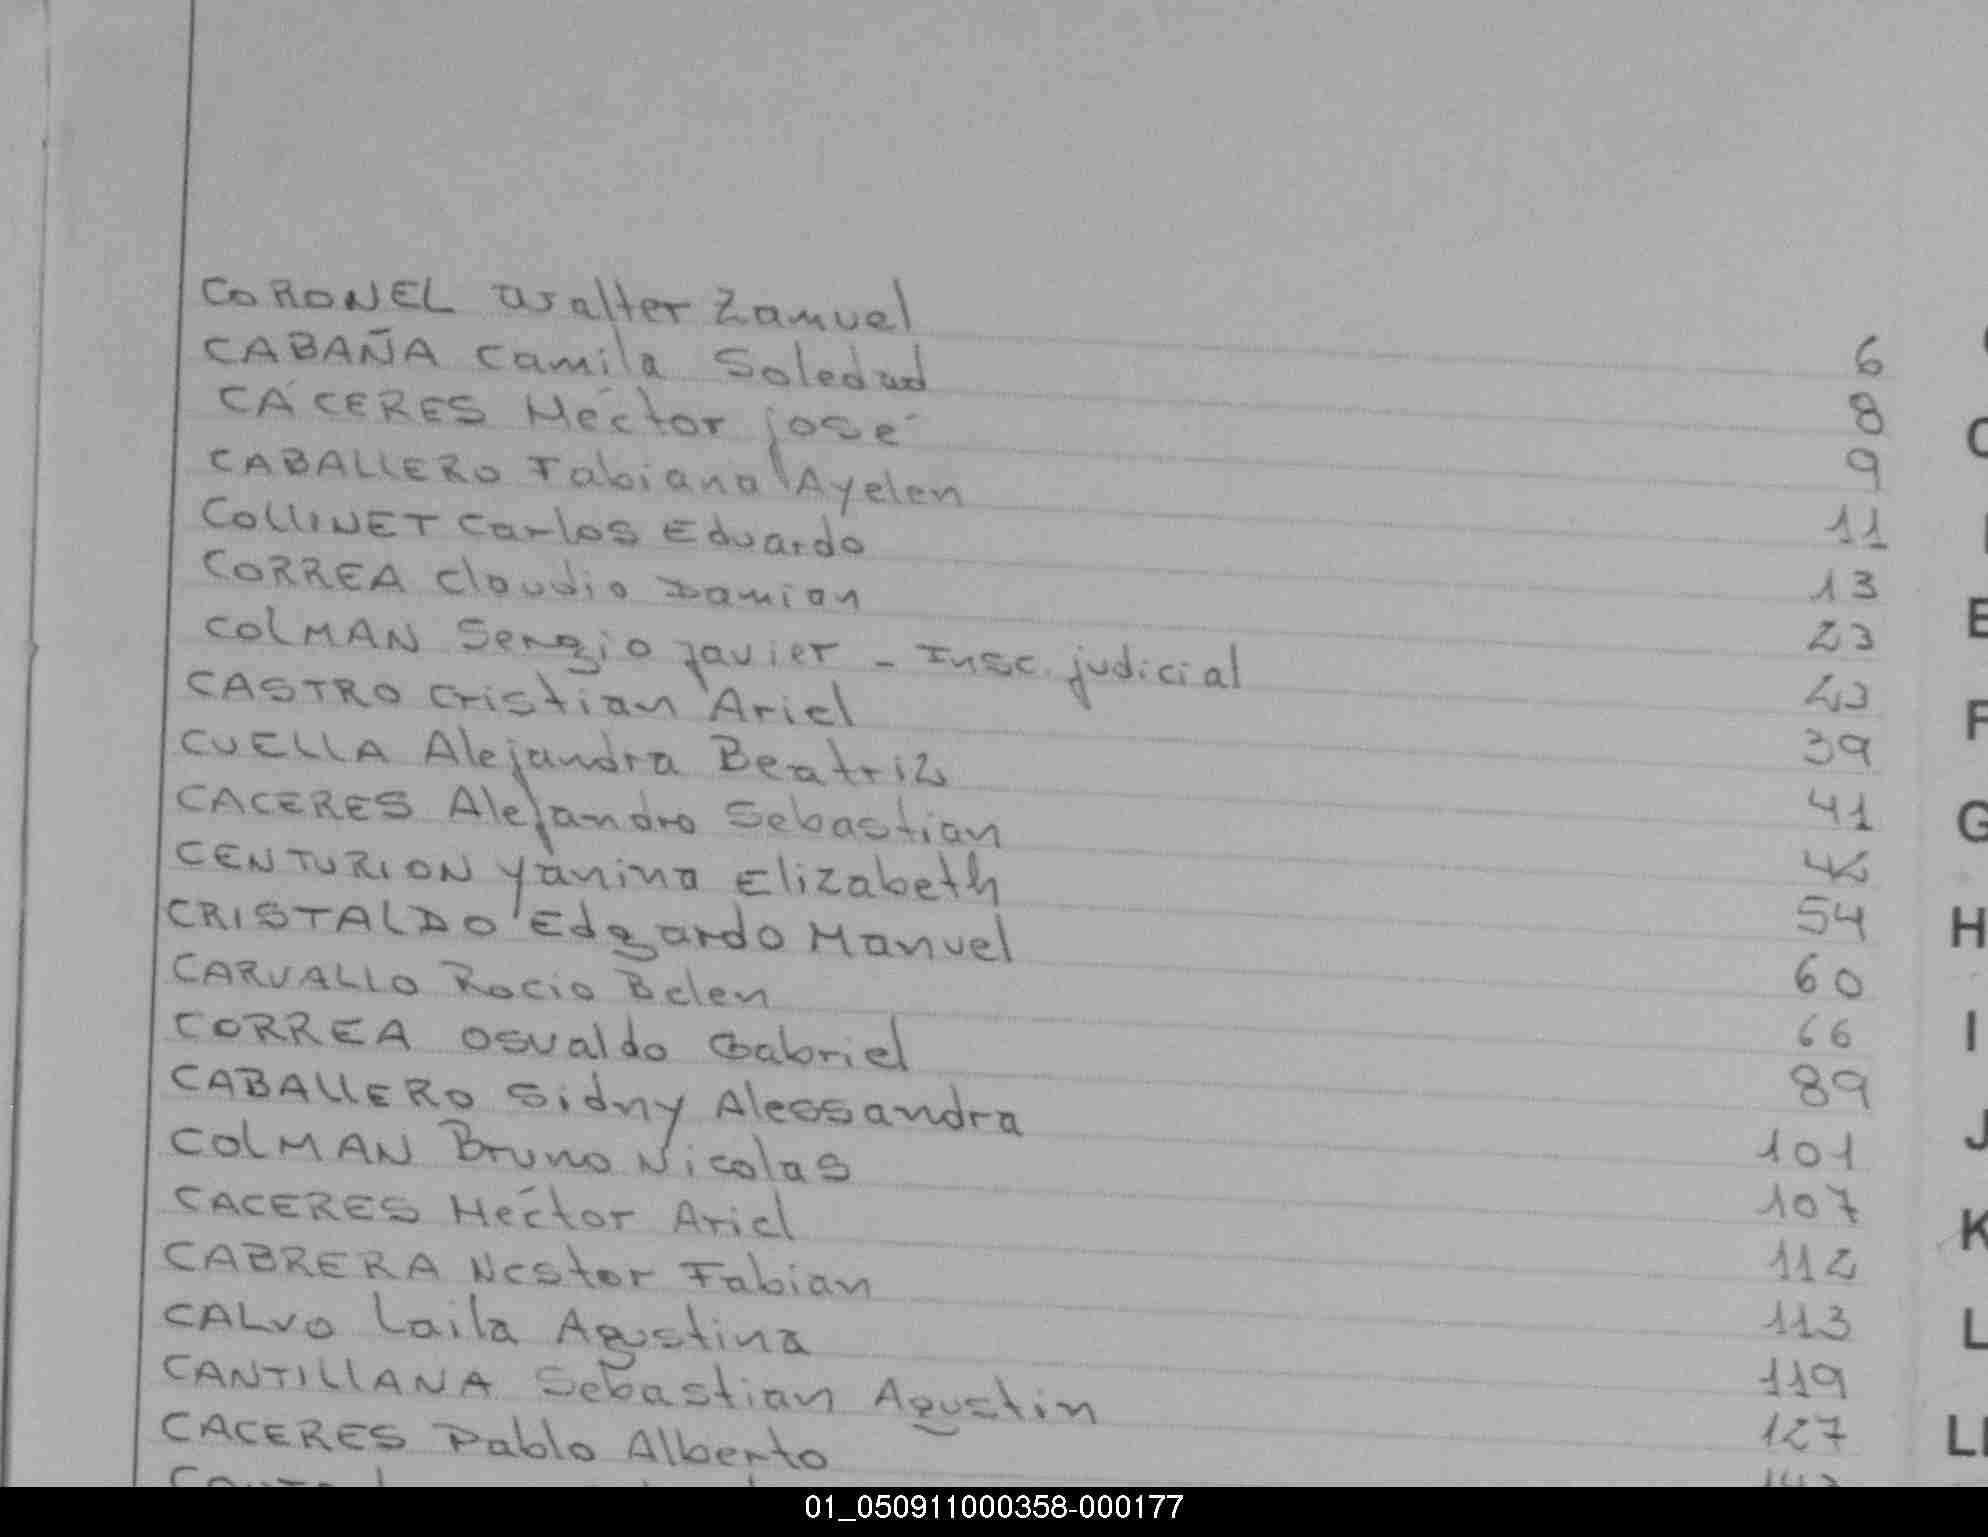 CORONEL Walter Zamuel 6
CABAÑA Camila Soledad 8
CÁCERES Héctor josé 9
CABALLERO Fabiana Ayelen 11
COLLINET Carlos Eduardo 13
CORREA Claudio Damian 23
COLMAN Sergio Javier - Insc. judicial 23
CASTRO Cristian Ariel 39
CUELLA Alejandra Beatriz 41
CACERES Alejandro Sebastian 42
CENTURION Yanina Elizabeth 54
CRISTALDO Edgardo Manuel 60
CARVALLO Rocio Belen 66
CORREA Osvaldo Gabriel 89
CABALLERO Sidny Alessandra 101
COLMAN Bruno Nicolas 107
CACERES Héctor Ariel 112
CABRERA Nestor Fabian 113
CALVO Laila Agustina 119
CANTILLANA Sebastian Agustin 127
CACERES Pablo Alberto
E
F
G
H
I
J
K
L
01_050911000358-000177